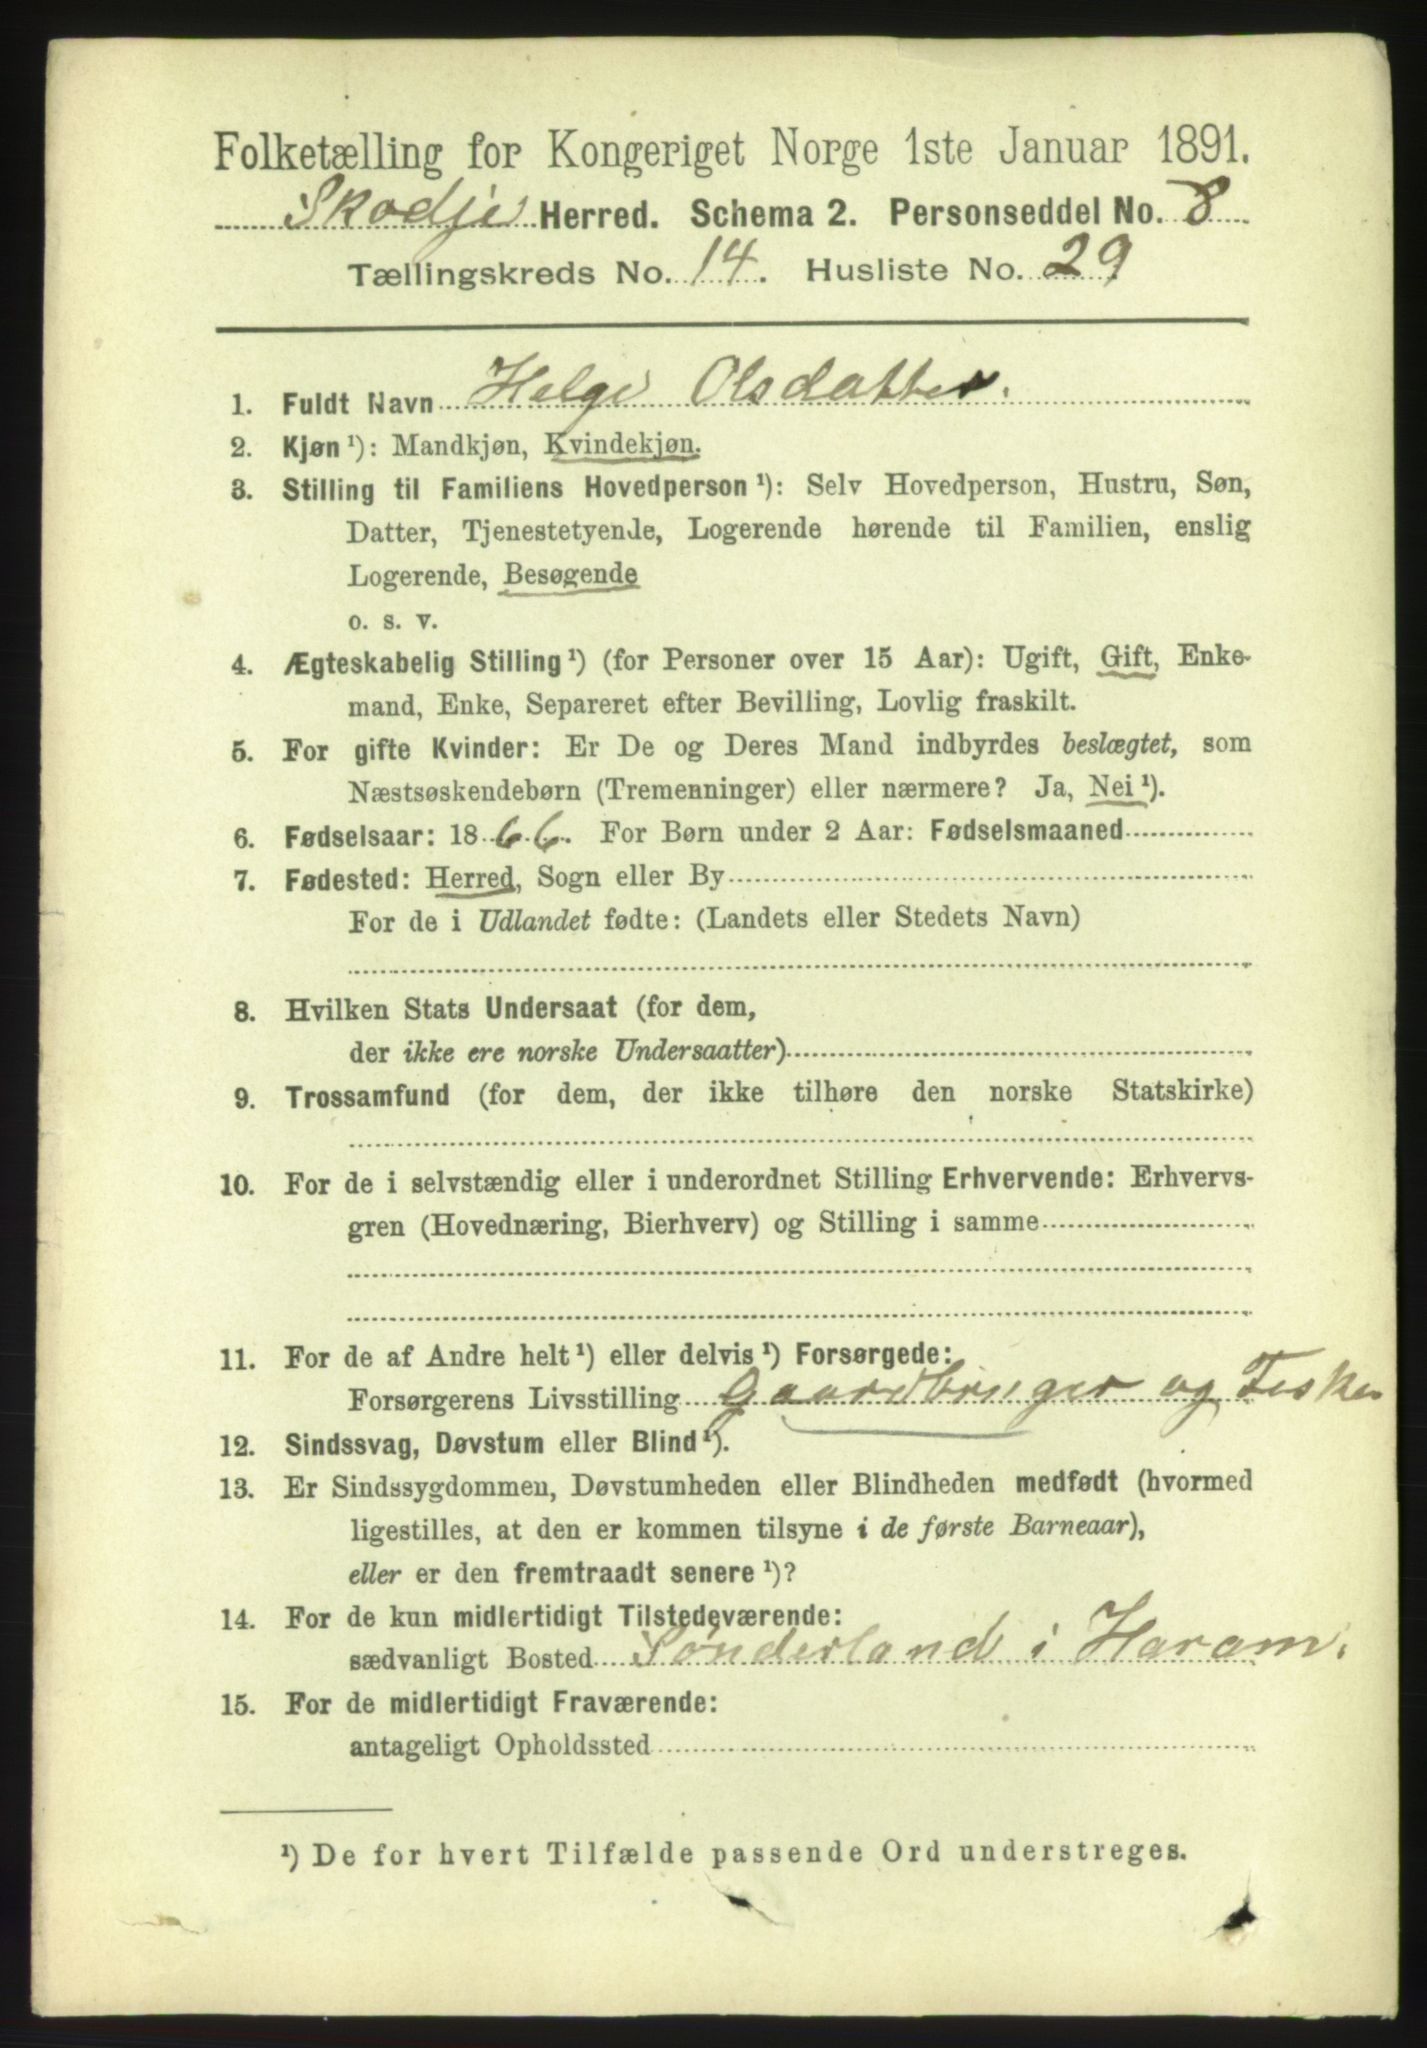 Folketælling for Kongeriget Norge 1ste Januar 1891.
Skodje Herred. Schema 2. Personseddel No. 8
Tællingskreds No. 14. Husliste No. 29
1. Fuldt Navn Helge Olsdatter.
2. Kjøn ¹): Mandkjøn, Kvindekjøn.
3. Stilling til Familiens Hovedperson ¹): Selv Hovedperson, Hustru, Søn,
Datter, Tjenestetyende, Logerende hørende til Familien, enslig
Logerende, Besøgende
o. s. v.
4. Ægteskabelig Stilling ¹) (for Personer over 15 Aar): Ugift, Gift, Enke-
mand, Enke, Separeret efter Bevilling, Lovlig fraskilt.
5. For gifte Kvinder: Er De og Deres Mand indbyrdes beslægtet, som
Næstsøskendebørn (Tremenninger) eller nærmere? Ja, Nei ¹).
6. Fødselsaar: 1866. For Børn under 2 Aar: Fødselsmaaned
7. Fødested: Herred, Sogn eller By
For de i Udlandet fødte: (Landets eller Stedets Navn)
8. Hvilken Stats Undersaat (for dem,
der ikke ere norske Undersaatter)
9. Trossamfund (for dem, der ikke tilhøre den norske Statskirke)
10. For de i selvstændig eller i underordnet Stilling Erhvervende: Erhvervs-
gren (Hovednæring, Bierhverv) og Stilling i samme
11. For de af Andre helt ¹) eller delvis ¹) Forsørgede:
Forsørgerens Livsstilling Gaardbruger og Fisker
12. Sindssvag, Døvstum eller Blind ¹).
13. Er Sindssygdommen, Døvstumheden eller Blindheden medfødt (hvormed
ligestilles, at den er kommen tilsyne i de første Barneaar),
eller er den fremtraadt senere ¹)?
14. For de kun midlertidigt Tilstedeværende:
sædvanligt Bosted Sønderland i Haram.
15. For de midlertidigt Fraværende:
antageligt Opholdssted
¹) De for hvert Tilfælde passende Ord understreges.